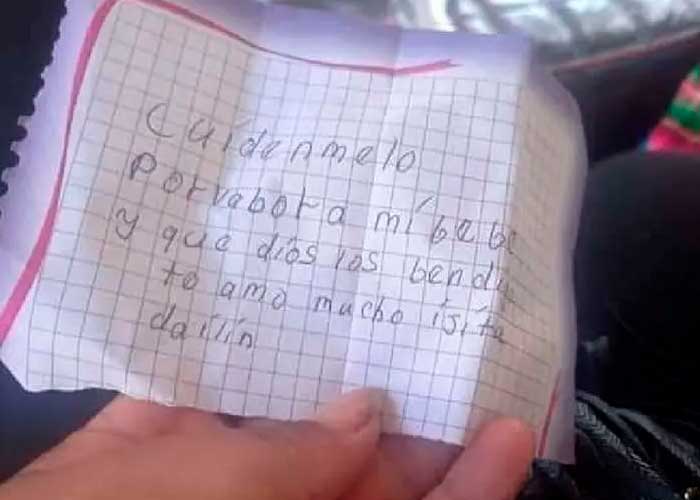 Cuidenmelo
Porvabor a mí bebe
y que dios los bendi
te amo mucho isita
dailín